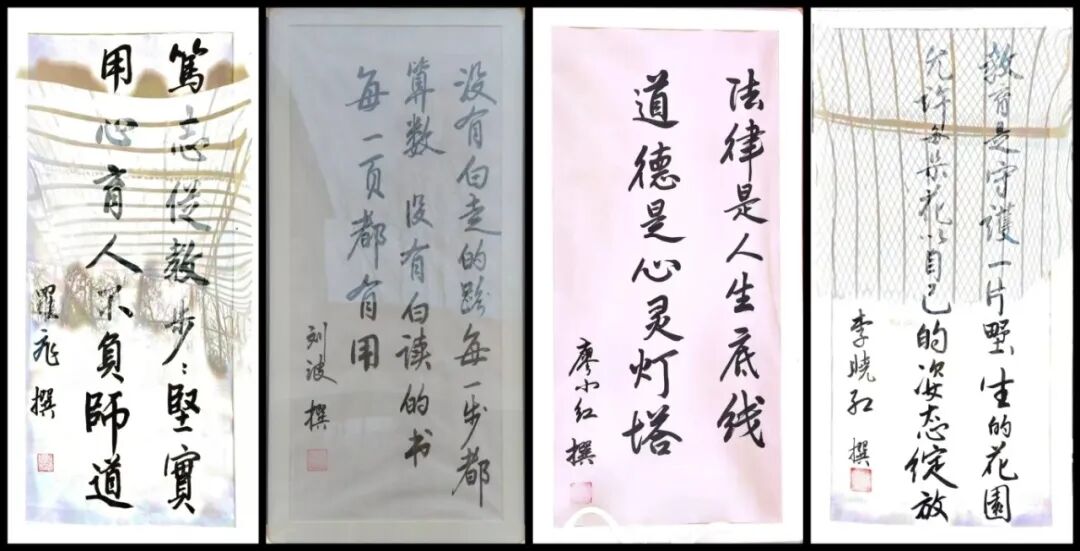 篤志從教步:堅實
用心育人不負師道
羅飛 撰
没有白走的路每一步都
算数 没有白读的书
每一页都有用
刘波 撰
法律是人生底线
道德是心灵灯塔
廖小红 撰
教育是守護一片野生的花園
允许每朵花以自己的姿态绽放
李晓红 撰